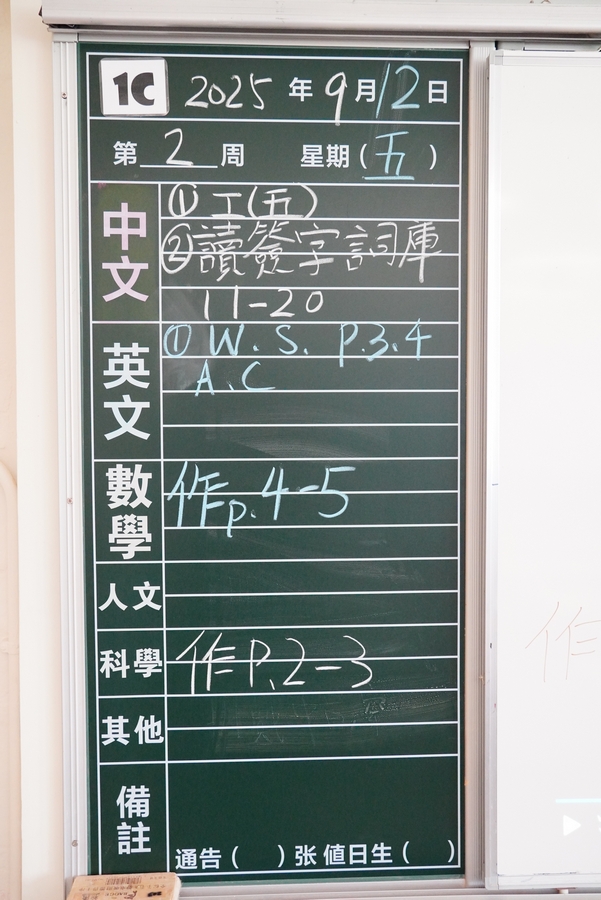 1C 2025 年 9 月 12 日
第 2 周 星期（五）
中文
① 工（五）
② 讀簽字詞庫
11-20
英文
① W.S. P.3.4
A、C
數學
作p.4-5
人文
科學
作P.2-3
其他
備註
通告（ ）张 值日生（ ）
作